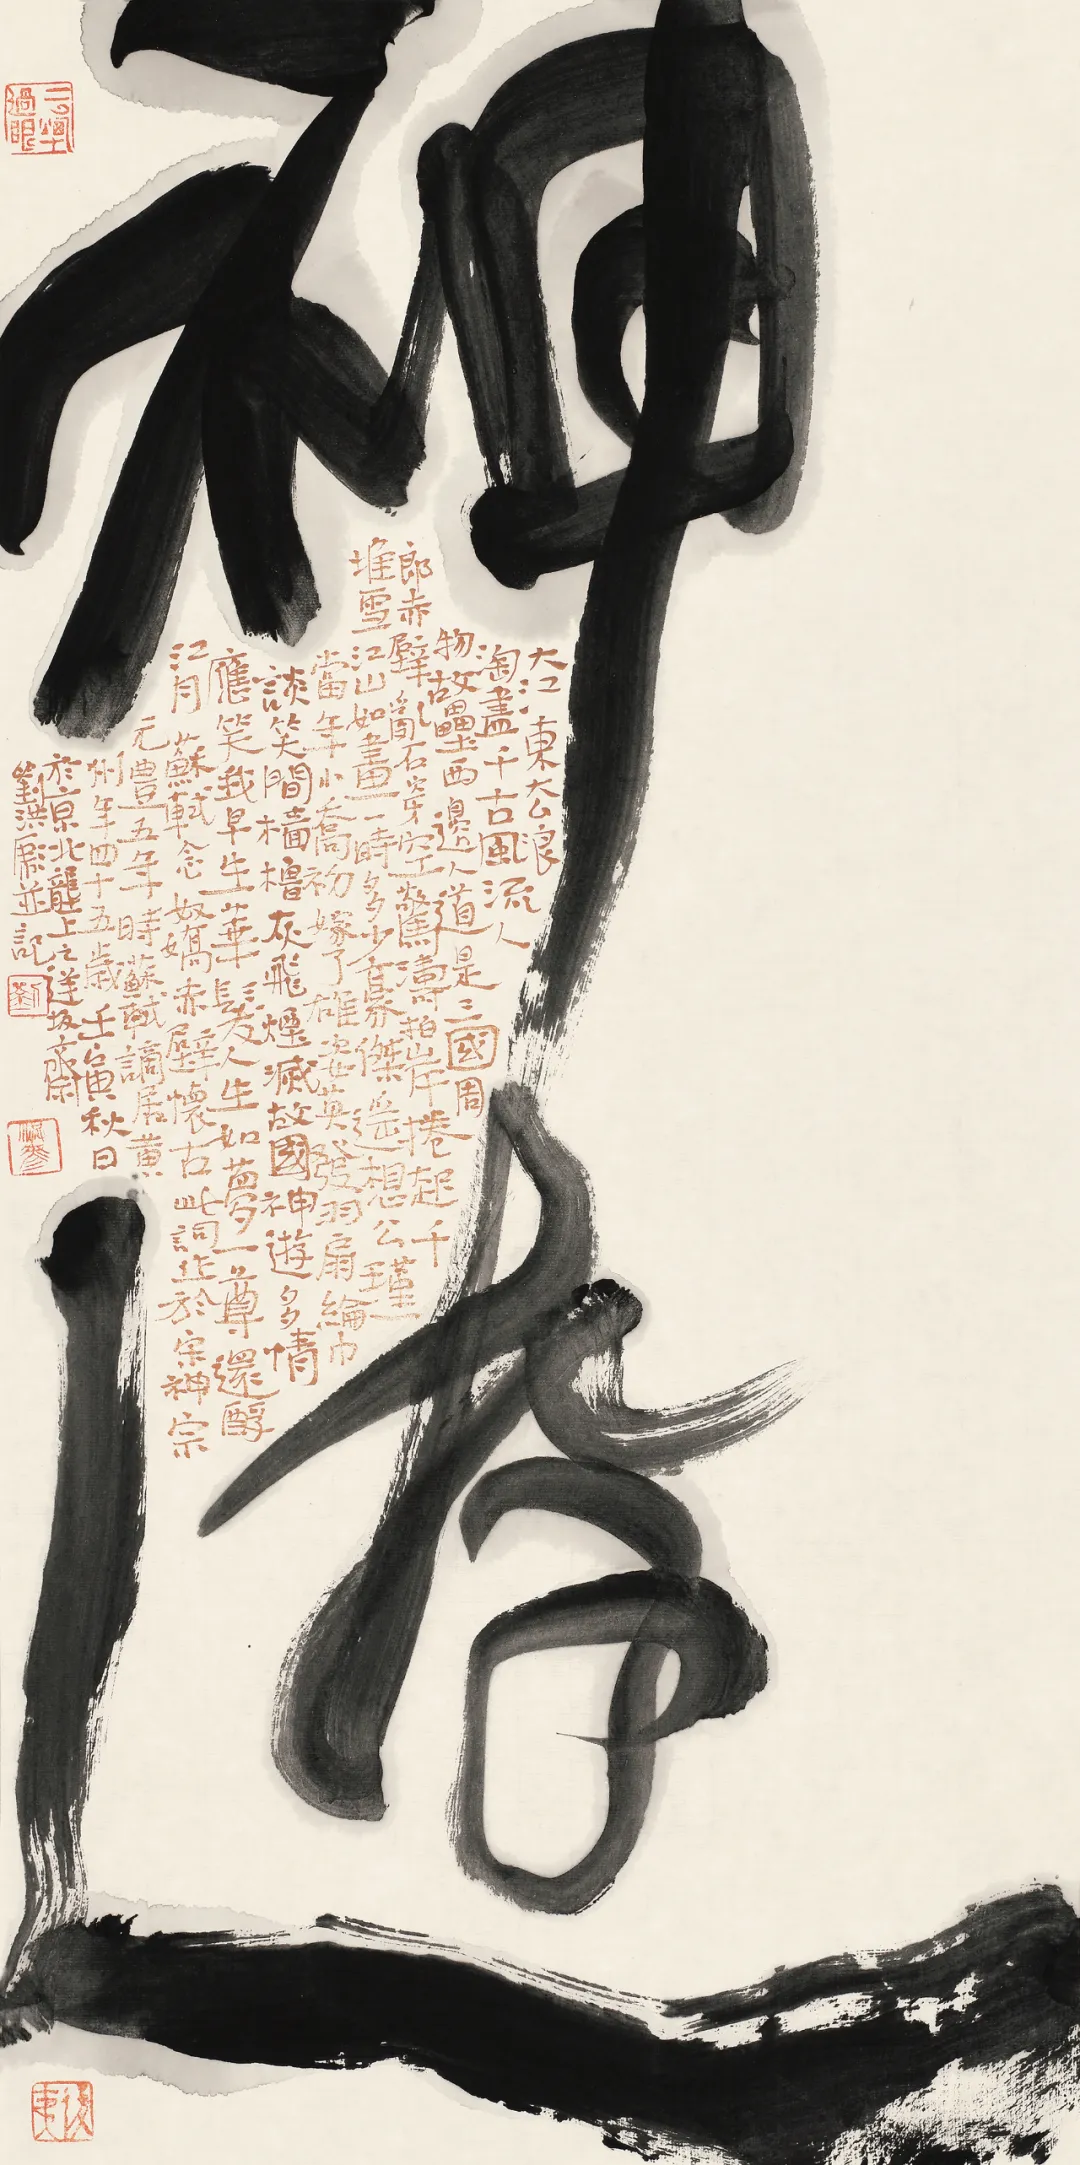 神遊
大江東去浪
淘盡千古風流人
物故壘西邊人道是三國周
郎赤壁亂石穿空驚濤拍岸捲起千
堆雪江山如畫一時多少豪傑遙想公瑾
當年小喬初嫁了雄姿英發羽扇綸巾
談笑間檣櫓灰飛煙滅故國神遊多情
應笑我早生華髮人生如夢一尊還酹
江月蘇軾念奴嬌赤壁懷古此詞作於宋神宗
元豐五年時蘇軾謫居黃
州年四十五歲壬寅秋日
於京北壟上之
劉洪彪並記
劉